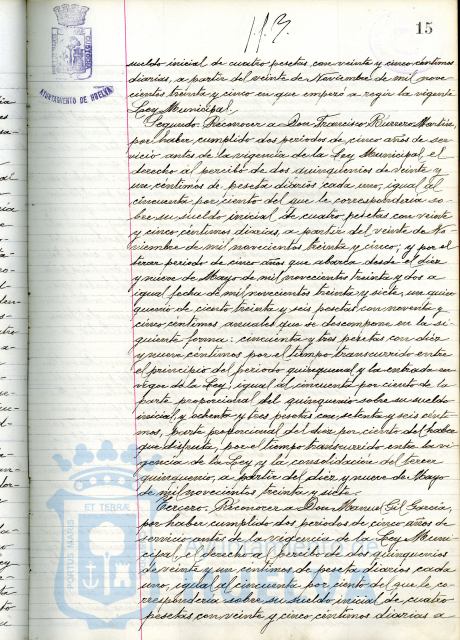 15
AYUNTAMIENTO DE HUELVA
sueldo inicial de cuatro pesetas con veinte y cinco céntimos
diarias, a partir del veinte de Noviembre de mil nove-
cientos treinta y cinco en que empezó a regir la vigente
Ley Municipal.
Segundo. Reconocer a Don Francisco Romero Martín,
por haber cumplido dos periodos de cinco años de ser-
vicio antes de la vigencia de la Ley Municipal, el
derecho al percibo de dos quinquenios de veinte y
un céntimos de peseta diarios cada uno, igual al
cincuenta por ciento del que le correspondería so-
bre su sueldo inicial de cuatro pesetas con veinte
y cinco céntimos diarias, a partir del veinte de No-
viembre de mil novecientos treinta y cinco; y por el
tercer periodo de cinco años que abarca desde el diez
y nueve de Mayo de mil novecientos treinta y dos a
igual fecha de mil novecientos treinta y siete, un quin-
quenio de ciento treinta y seis pesetas con noventa y
cinco céntimos anuales que se descompone en la si-
guiente forma: cincuenta y tres pesetas con diez
y nueve céntimos por el tiempo transcurrido entre
el principio del periodo quinquenal y la entrada en
vigor de la Ley, igual al cincuenta por ciento de la
parte proporcional del quinquenio sobre su sueldo
inicial, y ochenta y tres pesetas con setenta y seis cénti-
mos, parte proporcional del diez por ciento del haber
que disfruta, por el tiempo transcurrido entre la vi-
gencia de la Ley y la consolidación del tercer
quinquenio, a partir del diez y nueve de Mayo
de mil novecientos treinta y siete.
Tercero. Reconocer a Don Manuel Gil García,
por haber cumplido dos periodos de cinco años de
servicio antes de la vigencia de la Ley Muni-
cipal, el derecho al percibo de dos quinquenios
de veinte y un céntimos de peseta diarios cada
uno, igual al cincuenta por ciento del que le co-
rrespondería sobre su sueldo inicial de cuatro
pesetas con veinte y cinco céntimos diarias a
PORTUS MARIS ET TERRAE
HUELVA